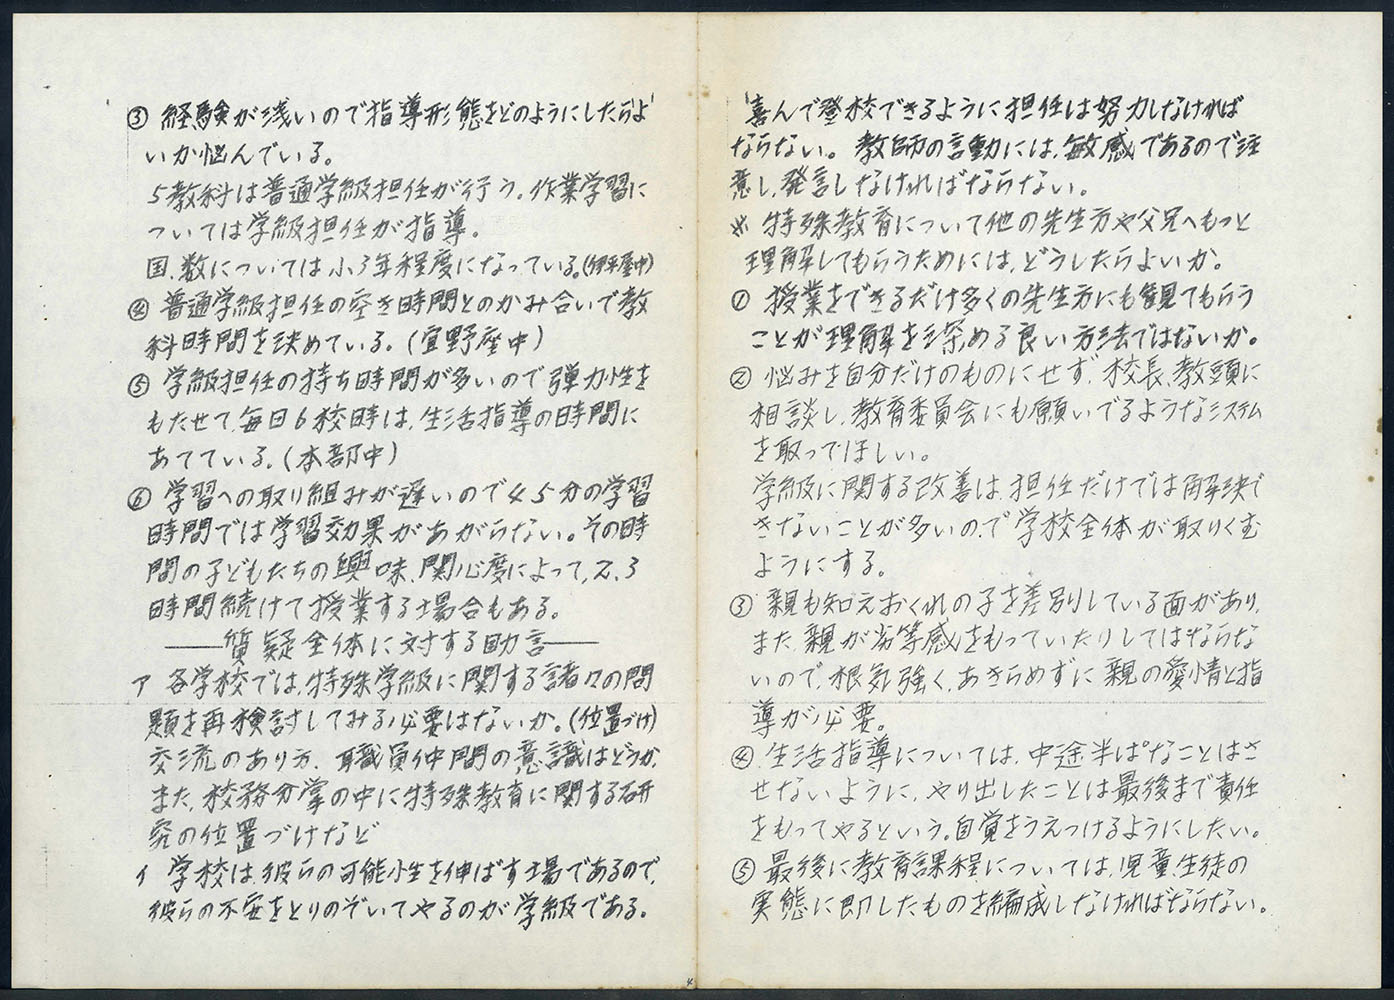 ③ 経験が浅いので指導形態をどのようにしたらよ
いか悩んでいる。
5教科は普通学級担任が行う。作業学習に
ついては学級担任が指導。
国、数については小3年程度になっている。(伊平屋中)
④ 普通学級担任の空き時間とのかみ合いで教
科時間を決めている。(宜野座中)
⑤ 学級担任の持ち時間が多いので弾力性を
もたせて、毎日6校時は、生活指導の時間に
あてている。(本部中)
⑥ 学習への取り組みが遅いので45分の学習
時間では学習効果があがらない。その時
間の子どもたちの興味、関心度によって、2、3
時間続けて授業する場合もある。
――質疑全体に対する助言――
ア 各学校では、特殊学級に関する諸々の問
題を再検討してみる必要はないか。(位置づけ)
交流のあり方、職員仲間の意識はどうか、
また、校務分掌の中に特殊教育に関する研
究の位置づけなど
イ 学校は、彼らの可能性を伸ばす場であるので、
彼らの不安をとりのぞいてやるのが学級である。
喜んで登校できるように担任は努力しなければ
ならない。教師の言動には、敏感であるので注
意し、発言しなければならない。
※ 特殊教育について他の先生方や父兄へもっと
理解してもらうためには、どうしたらよいか。
① 授業をできるだけ多くの先生方にも観てもらう
ことが理解を深める良い方法ではないか。
② 悩みを自分だけのものにせず、校長、教頭に
相談し、教育委員会にも願いでるようなシステム
を取ってほしい。
学級に関する改善は、担任だけでは解決で
きないことが多いので、学校全体が取りくむ
ようにする。
③ 親も知えおくれの子を差別している面があり、
また、親が劣等感をもっていたりしてはならな
いので、根気強く、あきらめずに親の愛情と指
導が必要。
④ 生活指導については、中途半ぱなことはさ
せないように、やり出したことは最後まで責任
をもってやるという。自覚をうえつけるようにしたい。
⑤ 最後に教育課程については、児童、生徒の
実態に即したものを編成しなければならない。
4